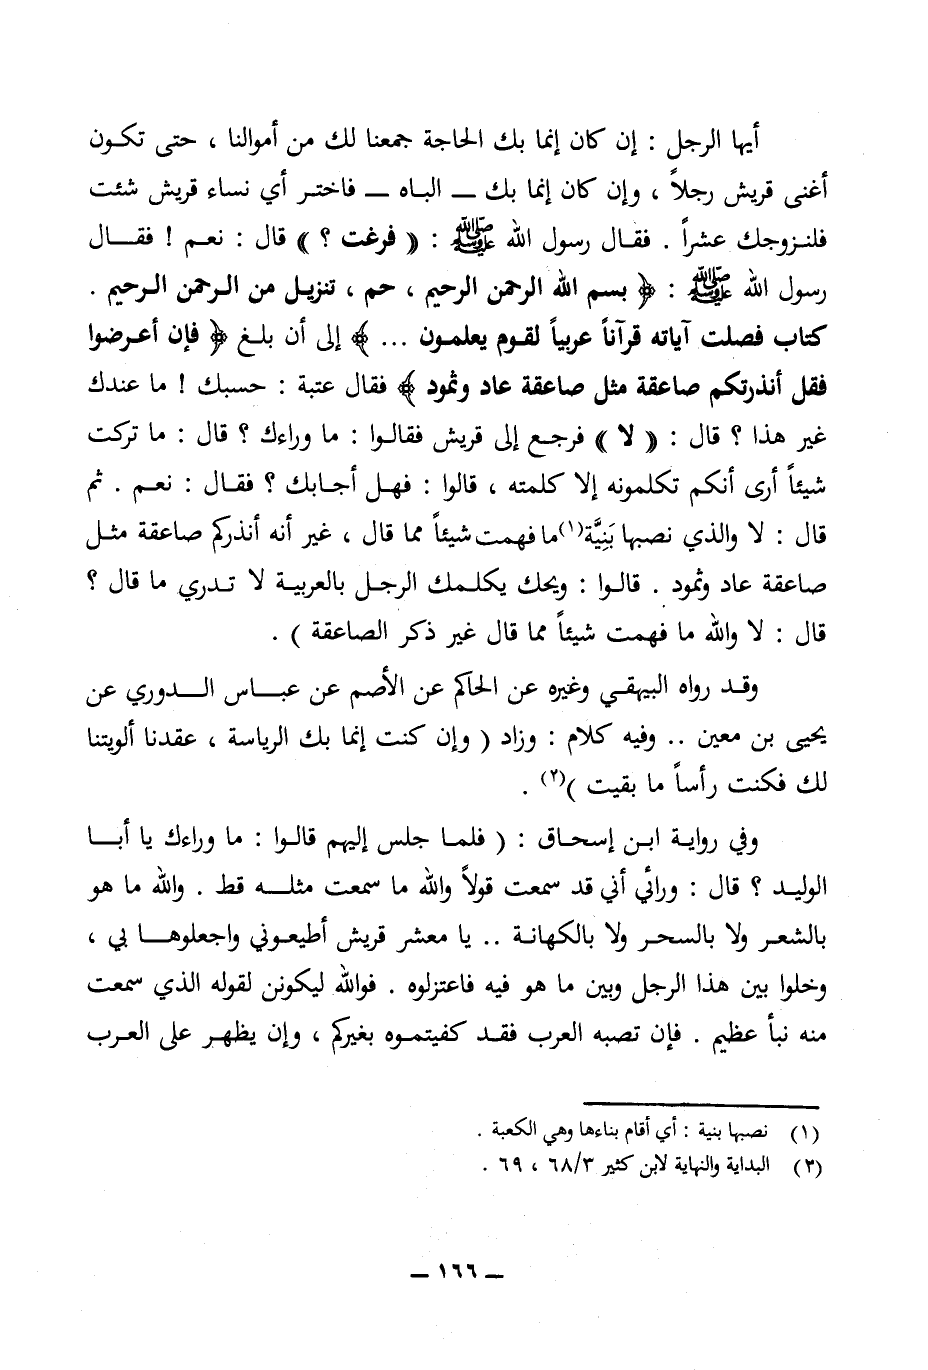 أيها الرجل : إن كان إنما بك الحاجة جمعنا لك من أموالنا ، حتى تكون
أغنى قريش رجلاً ، وإن كان إنما بك ــ الباه ــ فاختر أي نساء قريش شئت
فلنزوجك عشراً . فقال رسول الله ﷺ : « فرغت ؟ » قال : نعم ! فقال
رسول الله ﷺ : ﴿ بسم الله الرحمن الرحيم ، حم ، تنزيل من الرحمن الرحيم .
كتاب فصلت آياته قرآناً عربياً لقوم يعلمون ... ﴾ إلى أن بلغ ﴿ فإن أعرضوا
فقل أنذرتكم صاعقة مثل صاعقة عاد وثمود ﴾ فقال عتبة : حسبك ! ما عندك
غير هذا ؟ قال : « لا » فرجع إلى قريش فقالوا : ما وراءك ؟ قال : ما تركت
شيئاً أرى أنكم تكلمونه إلا كلمته ، قالوا : فهل أجابك ؟ فقال : نعم . ثم
قال : لا والذي نصبها بَنِيَّة(١) ما فهمت شيئاً مما قال ، غير أنه أنذركم صاعقة مثل
صاعقة عاد وثمود . قالوا : ويحك يكلمك الرجل بالعربية لا تدري ما قال ؟
قال : لا والله ما فهمت شيئاً مما قال غير ذكر الصاعقة ) .
وقد رواه البيهقي وغيره عن الحاكم عن الأصم عن عباس الدوري عن
يحيى بن معين .. وفيه كلام : وزاد ( وإن كنت إنما بك الرياسة ، عقدنا ألويتنا
لك فكنت رأساً ما بقيت )(٢) .
وفي رواية ابن إسحاق : ( فلما جلس إليهم قالوا : ما وراءك يا أبا
الوليد ؟ قال : ورائي أني قد سمعت قولاً والله ما سمعت مثله قط . والله ما هو
بالشعر ولا بالسحر ولا بالكهانة .. يا معشر قريش أطيعوني واجعلوها بي ،
وخلوا بين هذا الرجل وبين ما هو فيه فاعتزلوه . فوالله ليكونن لقوله الذي سمعت
منه نبأ عظيم . فإن تصبه العرب فقد كفيتموه بغيركم ، وإن يظهر على العرب
(١) نصبها بنية : أي أقام بناءها وهي الكعبة .
(٢) البداية والنهاية لابن كثير ٦٨/٣ ، ٦٩ .
ــ ١٦٦ ــ